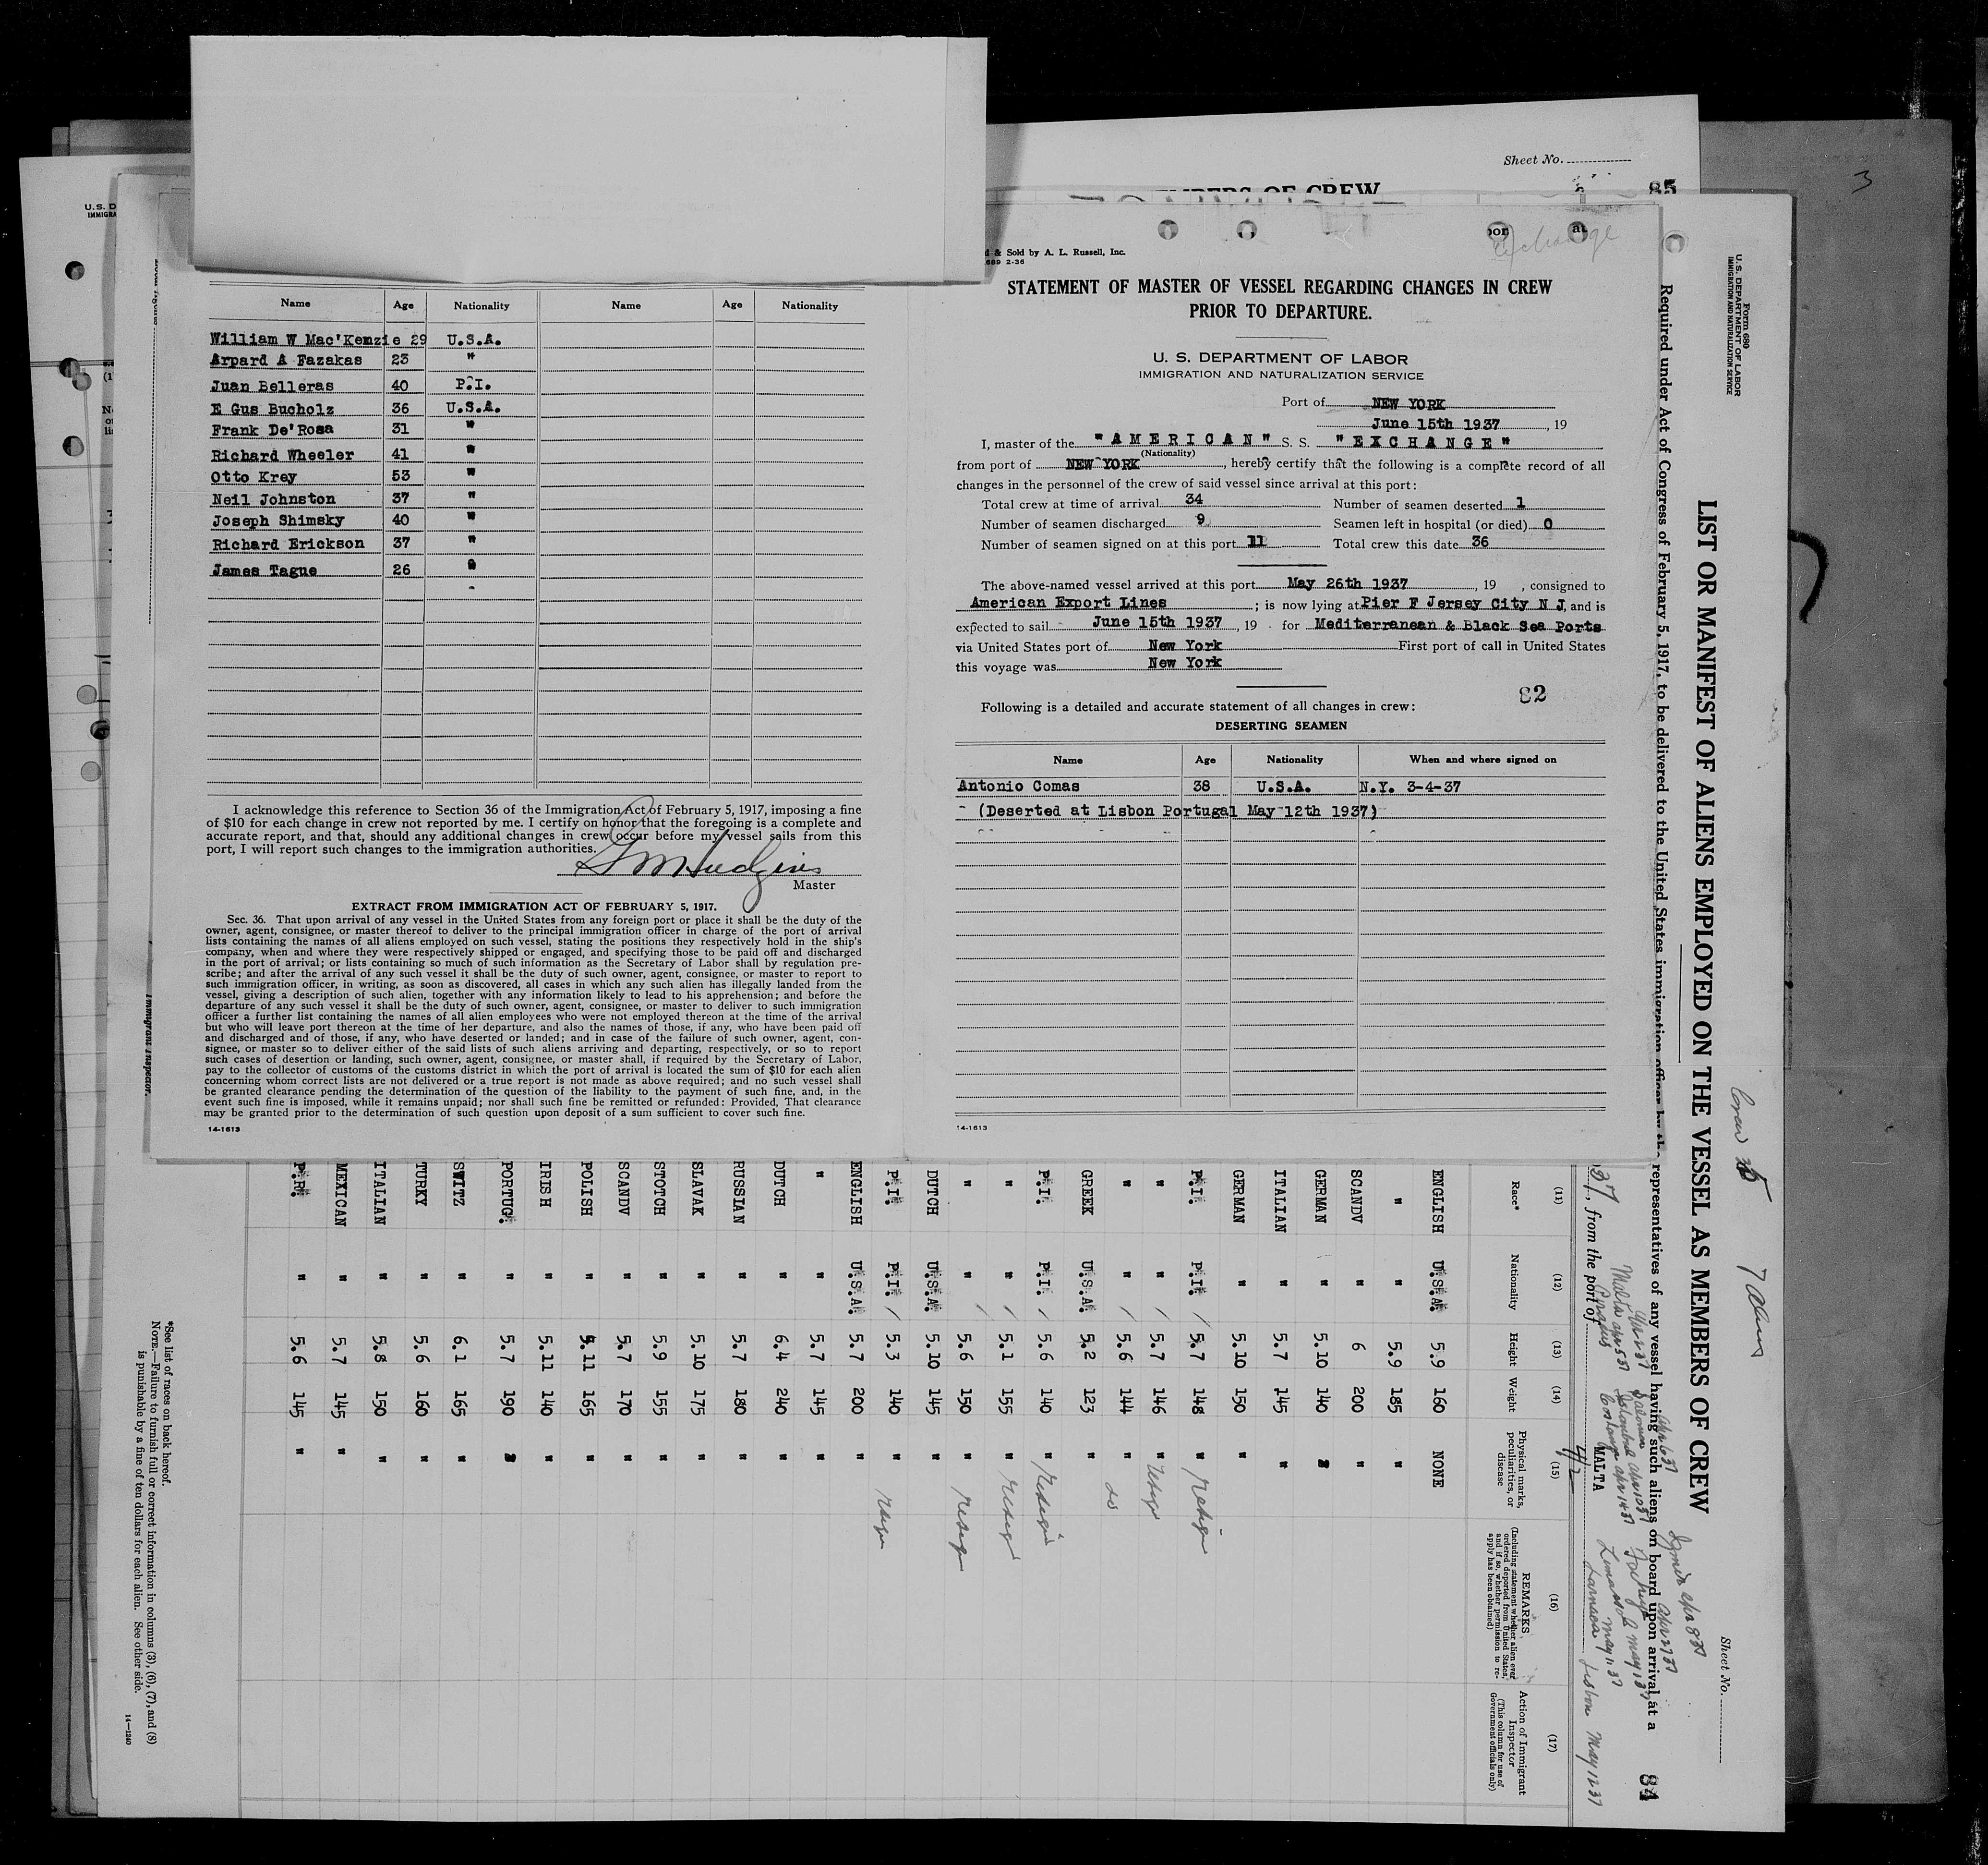 Sheet No.
85
3
U.S. D
IMMIGRA
Name Age Nationality Name Age Nationality
William W Mac'Kenzie 29 U.S.A.
Arpard A Fazakas 23 "
Juan Belleras 40 P.I.
E Gus Bucholz 36 U.S.A.
Frank De'Rosa 31 "
Richard Wheeler 41 "
Otto Krey 53 "
Neil Johnston 37 "
Joseph Shimsky 40 "
Richard Erickson 37 "
James Tague 26 "
I acknowledge this reference to Section 36 of the Immigration Act of February 5, 1917, imposing a fine
of $10 for each change in crew not reported by me. I certify on honor that the foregoing is a complete and
accurate report, and that, should any additional changes in crew occur before my vessel sails from this
port, I will report such changes to the immigration authorities.
G M Hudgins
Master
EXTRACT FROM IMMIGRATION ACT OF FEBRUARY 5, 1917.
Sec. 36. That upon arrival of any vessel in the United States from any foreign port or place it shall be the duty of the
owner, agent, consignee, or master thereof to deliver to the principal immigration officer in charge of the port of arrival
lists containing the names of all aliens employed on such vessel, stating the positions they respectively hold in the ship's
company, when and where they were respectively shipped or engaged, and specifying those to be paid off and discharged
in the port of arrival; or lists containing so much of such information as the Secretary of Labor shall by regulation pre-
scribe; and after the arrival of any such vessel it shall be the duty of such owner, agent, consignee, or master to report to
such immigration officer, in writing, as soon as discovered, all cases in which any such alien has illegally landed from the
vessel, giving a description of such alien, together with any information likely to lead to his apprehension; and before the
departure of any such vessel it shall be the duty of such owner, agent, consignee, or master to deliver to such immigration
officer a further list containing the names of all alien employees who were not employed thereon at the time of the arrival
but who will leave port thereon at the time of her departure, and also the names of those, if any, who have been paid off
and discharged and of those, if any, who have deserted or landed; and in case of the failure of such owner, agent, con-
signee, or master so to deliver either of the said lists of such aliens arriving and departing, respectively, or so to report
such cases of desertion or landing, such owner, agent, consignee, or master shall, if required by the Secretary of Labor,
pay to the collector of customs of the customs district in which the port of arrival is located the sum of $10 for each alien
concerning whom correct lists are not delivered or a true report is not made as above required; and no such vessel shall
be granted clearance pending the determination of the question of the liability to the payment of such fine, and, in the
event such fine is imposed, while it remains unpaid; nor shall such fine be remitted or refunded: Provided, That clearance
may be granted prior to the determination of such question upon deposit of a sum sufficient to cover such fine.
14-1613
Immigrant Inspector.
exchange
& Sold by A. L. Russell, Inc.
689 2-36
STATEMENT OF MASTER OF VESSEL REGARDING CHANGES IN CREW
PRIOR TO DEPARTURE.
U. S. DEPARTMENT OF LABOR
IMMIGRATION AND NATURALIZATION SERVICE
Port of NEW YORK
June 15th 1937, 19
I, master of the "AMERICAN" S. S. "EXCHANGE"
(Nationality)
from port of NEW YORK, hereby certify that the following is a complete record of all
changes in the personnel of the crew of said vessel since arrival at this port:
Total crew at time of arrival 34 Number of seamen deserted 1
Number of seamen discharged 9 Seamen left in hospital (or died) 0
Number of seamen signed on at this port 11 Total crew this date 36
The above-named vessel arrived at this port May 26th 1937, 19 , consigned to
American Export Lines; is now lying at Pier F Jersey City N J, and is
expected to sail June 15th 1937, 19 for Mediterranean & Black Sea Ports
via United States port of New York First port of call in United States
this voyage was New York
82
Following is a detailed and accurate statement of all changes in crew:
DESERTING SEAMEN
Name Age Nationality When and where signed on
Antonio Comas 38 U.S.A. N.Y. 3-4-37
(Deserted at Lisbon Portugal May 12th 1937)
14-1613
Form 680
U. S. DEPARTMENT OF LABOR
IMMIGRATION AND NATURALIZATION SERVICE
Sheet No.
LIST OR MANIFEST OF ALIENS EMPLOYED ON THE VESSEL AS MEMBERS OF CREW
Required under Act of Congress of February 5, 1917, to be delivered to the United States immigration officer by the representatives of any vessel having such aliens on board upon arrival at a
84
37, from the port of MALTA
Lisbon May 12 37
(11) (12) (13) (14) (15) (16) (17)
Race* Nationality Height Weight Physical marks, peculiarities, or disease REMARKS (Including statement whether alien ever ordered deported from United States, and if so, whether permission to re-apply has been obtained) Action of Immigrant Inspector (This column for use of Government officials only)
ENGLISH U.S.A. 5.9 160 NONE
" " 5.9 185 "
SCANDV " 6 200 "
GERMAN " 5.10 140 "
ITALIAN " 5.7 145 "
GERMAN " 5.10 150 "
P.I. P.I. 5.7 148 "
" " 5.7 146 "
" " 5.6 144 " do
GREEK U.S.A. 5.2 123 "
P.I. P.I. 5.6 140 "
" " 5.1 155 "
" " 5.6 150 "
DUTCH U.S.A. 5.10 145 "
P.I. P.I. 5.3 140 "
ENGLISH U.S.A. 5.7 200 "
" " 5.7 145 "
DUTCH " 6.4 240 "
RUSSIAN " 5.7 180 "
SLAVAK " 5.10 175 "
STOTCH " 5.9 155 "
SCANDV " 5.7 170 "
POLISH " 5.11 165 "
IRISH " 5.11 140 "
PORTUG. " 5.7 190 "
SWITZ " 6.1 165 "
TURKY " 5.6 160 "
ITALIAN " 5.8 150 "
MEXICAN " 5.7 145 "
P.R. " 5.6 145 "
*See list of races on back hereof.
NOTE.—Failure to furnish full or correct information in columns (3), (6), (7), and (8)
is punishable by a fine of ten dollars for each alien. See other side.
14-1240